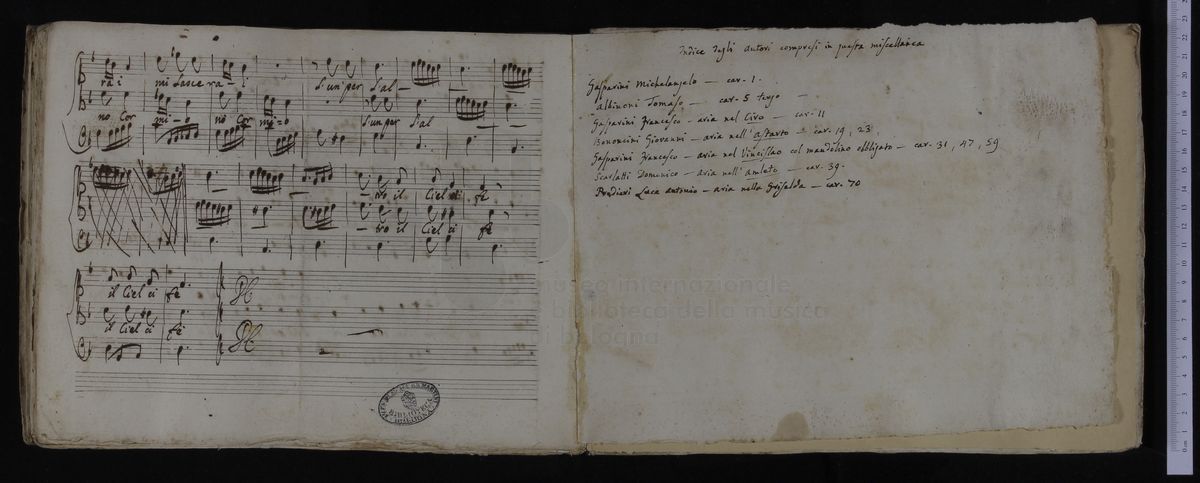 rai mi Lasce ra - i S'un per S'al -
no Cor mi - o nò Cor mi = o S'un per S'al
tro il Ciel ci fè
- tro il Ciel ci fè
il Ciel ci fè
il Ciel ci fè
DC
DC
BIBLIOTECA
Indice degli autori compresi in questa miscellanea
Gasparini Michelangelo — car. 1.
Albinoni Tomaso — car. 5 tergo —
Gasparini Francesco — aria nel Ciro — car. 11
Bononcini Giovanni — aria nell'Astarto — car. 19, 23,
Gasparini Francesco — aria nel Vincislao col mandolino obbligato — car. 31, 47, 59
Scarlatti Domenico — aria nell'Amleto — car. 39.
Predieri Luca Antonio — aria nella Griselda — car. 70
museo internazionale
e biblioteca della musica
di bologna